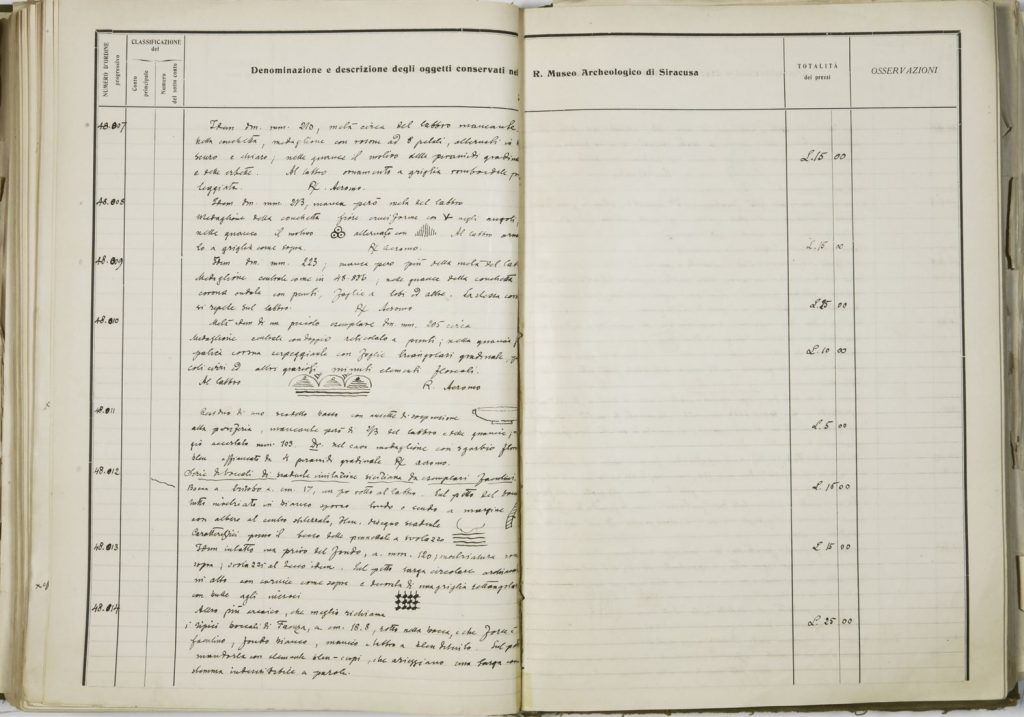 NUMERO D'ORDINE progressivo
CLASSIFICAZIONE del
Conto principale
Numero del sotto conto
Denominazione e descrizione degli oggetti conservati nel R. Museo Archeologico di Siracusa
TOTALITÀ dei prezzi
OSSERVAZIONI
48.007 Idem dm. mm. 210, metà circa del labbro mancante.
Nella conchetta, medaglione con rosone ad 8 petali, alternati in
scuro e chiaro; nelle guance il motivo delle piramidi gradina
e delle erbette. Al labbro ornamento a griglia romboidale L. 15 00
leggiata. R. Acremo.
48.008 Idem dm. mm. 213, manca però metà del labbro
Medaglione della conchetta fiore cruciforme con + negli angoli,
nelle guance il motivo alternato con Al labbro
a griglia come sopra. R. Acremo. L. 15 00
48.009 Idem dm. mm. 223; manca però più della metà del lab
Medaglione centrale come in 48.006; nelle guance della conchetta
corona ondata con punti, foglie a lobi ed albe. La stessa
si repete sul labbro. R. Acremo L. 25 00
48.010 Metà idem di un piccolo esemplare dm. mm. 205 circa
Medaglione centrale con doppio reticolato a punti; nella guancia
corona serpeggiante con foglie triangolari gradinate, L. 10 00
coli cirri ed altri graziosi minuti elementi floreali.
Al labbro R. Acremo
48.011 Residuo di uno scodello basso con ansette di sospensione
alla periferia, mancante però di 2/3 del labbro e delle guance; L. 5 00
accertato mm. 103. Nel cavo medaglione con sgorbio
bleu affiancato da 4 piramidi gradinate R. Acremo.
48.012 Serie di boccali di scadente imitazione siciliana da esemplari faentini.
Bocca a trilobo a. cm. 17, un po rotto al labbro. Sul petto del L. 15 00
tutto invetriato in bianco sporco tondo o scudo a margine
con albero al centro Disegno scadente
Caratteristici presso il becco delle pennellate a svolazzo
48.013 Idem intatto ma privo del fondo, a. mm. 120; invetriatura
sopra; svolazzi al becco idem. Sul petto targa circolare L 15 00
in alto con cornice come sopra e decorata di una griglia rettangolare
con bolle agli incroci
48.014 Altro più arcaico, che meglio richiama
i tipici boccali di Faenza, a. cm. 18.8, rotto nella bocca, e che forse è L. 25 00
faentino, fondo bianco, manico e labbro a bleu Sul
mandorla con elemento bleu-cupi, che arieggiano una targa con
stemma indescrivibile a parole.